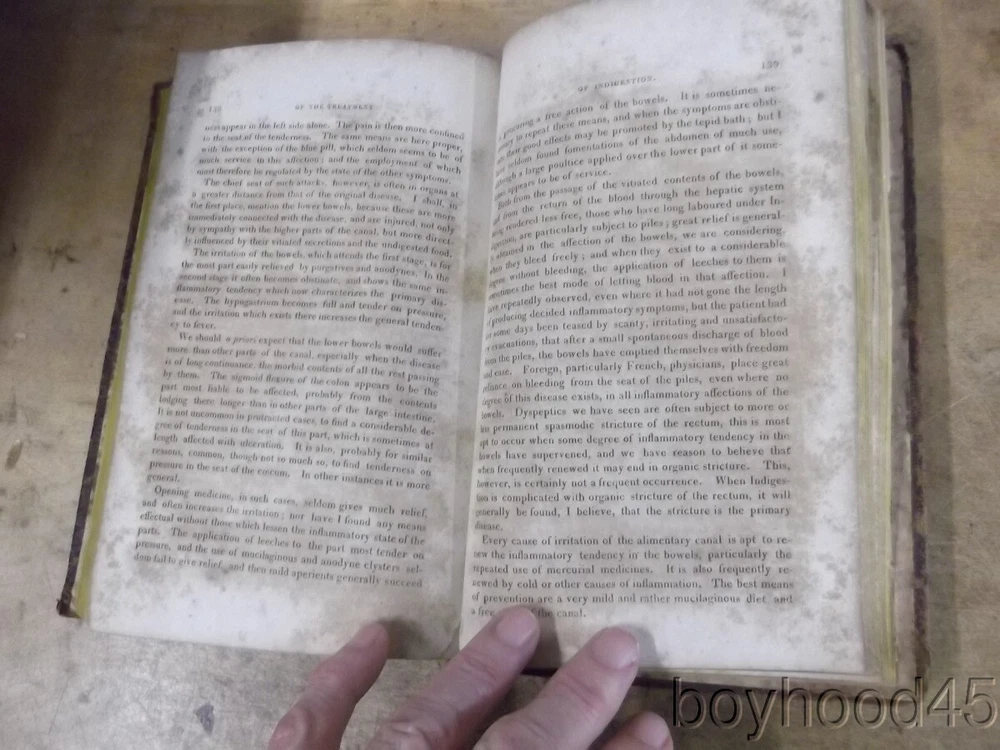 OF THE TREATMENT
appear in the left side alone. The pain is then more confined
to the seat of the tenderness. The same means are here proper,
with the exception of the blue pill, which seldom seems to be of
much service in this affection; and the employment of which
must therefore be regulated by the state of the other symptoms.
The chief seat of such attacks, however, is often in organs at
a greater distance from that of the original disease. I shall, in
the first place, mention the lower bowels, because these are more
immediately connected with the disease, and are injured, not only
by sympathy with the higher parts of the canal, but more direct-
ly influenced by their vitiated secretions and the undigested food.
The irritation of the bowels, which attends the first stage, is for
the most part easily relieved by purgatives and anodynes. In the
second stage it often becomes obstinate, and shows the same in-
flammatory tendency which now characterizes the primary dis-
ease. The hypogastrium becomes full and tender on pressure,
and the irritation which exists there increases the general tenden-
cy to fever.
We should a priori expect that the lower bowels would suffer
more than other parts of the canal, especially when the disease
is of long continuance, the morbid contents of all the rest passing
by them. The sigmoid flexure of the colon appears to be the
part most liable to be affected, probably from the contents
lodging there longer than in other parts of the large intestine.
It is not uncommon in protracted cases, to find a considerable de-
gree of tenderness in the seat of this part, which is sometimes at
length affected with ulceration. It is also, probably for similar
reasons, common, though not so much so, to find tenderness on
pressure in the seat of the cœcum. In other instances it is more
general.
Opening medicine, in such cases, seldom gives much relief,
and often increases the irritation; nor have I found any means
effectual without those which lessen the inflammatory state of the
parts. The application of leeches to the part most tender on
pressure, and the use of mucilaginous and anodyne clysters sel-
dom fail to give relief, and then mild aperients generally succeed
OF INDIGESTION. 139
procuring a free action of the bowels. It is sometimes ne-
to repeat these means, and when the symptoms are obsti-
their good effects may be promoted by the tepid bath; but I
seldom found fomentations of the abdomen of much use,
a large poultice applied over the lower part of it some-
appears to be of service.
Both from the passage of the vitiated contents of the bowels,
and from the return of the blood through the hepatic system
rendered less free, those who have long laboured under In-
are particularly subject to piles; great relief is general-
obtained in the affection of the bowels, we are considering,
when they bleed freely; and when they exist to a considerable
degree without bleeding, the application of leeches to them is
sometimes the best mode of letting blood in that affection. I
have repeatedly observed, even where it had not gone the length
of producing decided inflammatory symptoms, but the patient had
for some days been teased by scanty, irritating and unsatisfacto-
ry evacuations, that after a small spontaneous discharge of blood
from the piles, the bowels have emptied themselves with freedom
and ease. Foreign, particularly French, physicians, place great
reliance on bleeding from the seat of the piles, even where no
degree of this disease exists, in all inflammatory affections of the
bowels. Dyspeptics we have seen are often subject to more or
less permanent spasmodic stricture of the rectum, this is most
apt to occur when some degree of inflammatory tendency in the
bowels have supervened, and we have reason to believe that
when frequently renewed it may end in organic stricture. This,
however, is certainly not a frequent occurrence. When Indiges-
tion is complicated with organic stricture of the rectum, it will
generally be found, I believe, that the stricture is the primary
disease.
Every cause of irritation of the alimentary canal is apt to re-
new the inflammatory tendency in the bowels, particularly the
repeated use of mercurial medicines. It is also frequently re-
newed by cold or other causes of inflammation. The best means
of prevention are a very mild and rather mucilaginous diet and
a free the canal.
boyhood45